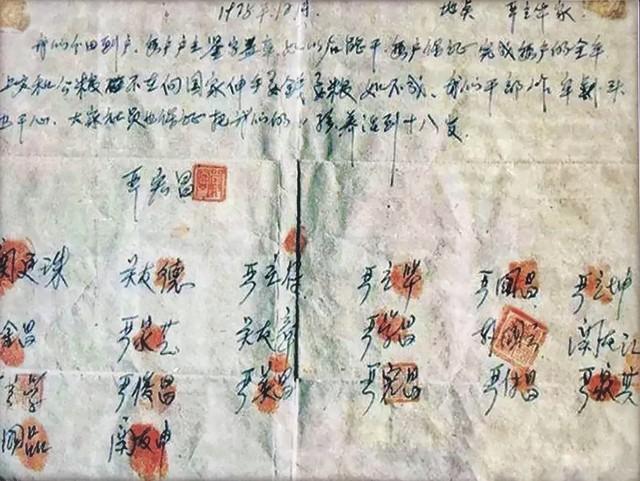 1978年12月. 地点 严立华家.
我们分田到户，每户户主签字盖章，如以后能干，每户保证完成每户的全年
上交和公粮，不在向国家伸手要钱要粮，如不成，我们干部作牢割头
也干心，大家社员也保证把我们的小孩养活到十八岁。
严宏昌
关廷珠 关友德 严立符 严立华 严国昌 严立坤
金昌 严家芝 关友章 严学昌 韩国云 关友江
立学 严俊昌 严美昌 严宏昌 严付昌 严家其
国品 关友申